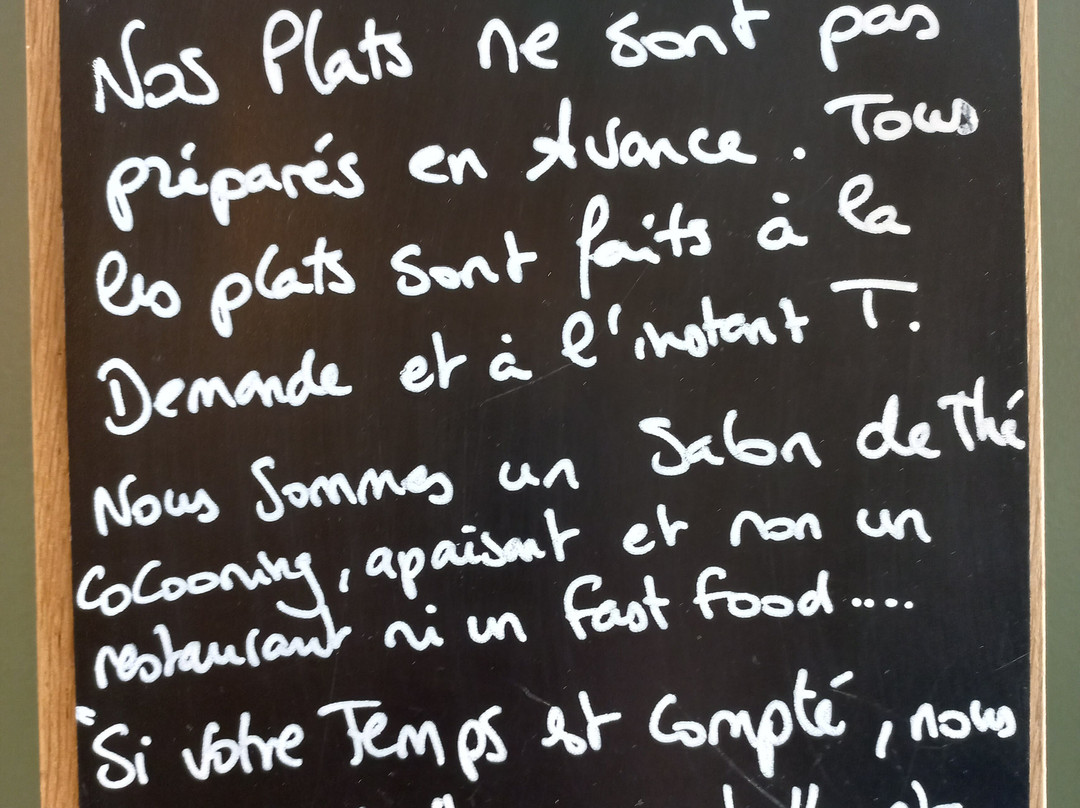 Nos Plats ne sont pas
préparés en Avance. Tous
les plats sont faits à la
Demande et à l'instant T.
Nous Sommes un Salon de Thé
CoCooning, apaisant et non un
restaurant ni un fast food....
"Si votre Temps est Compté, nous